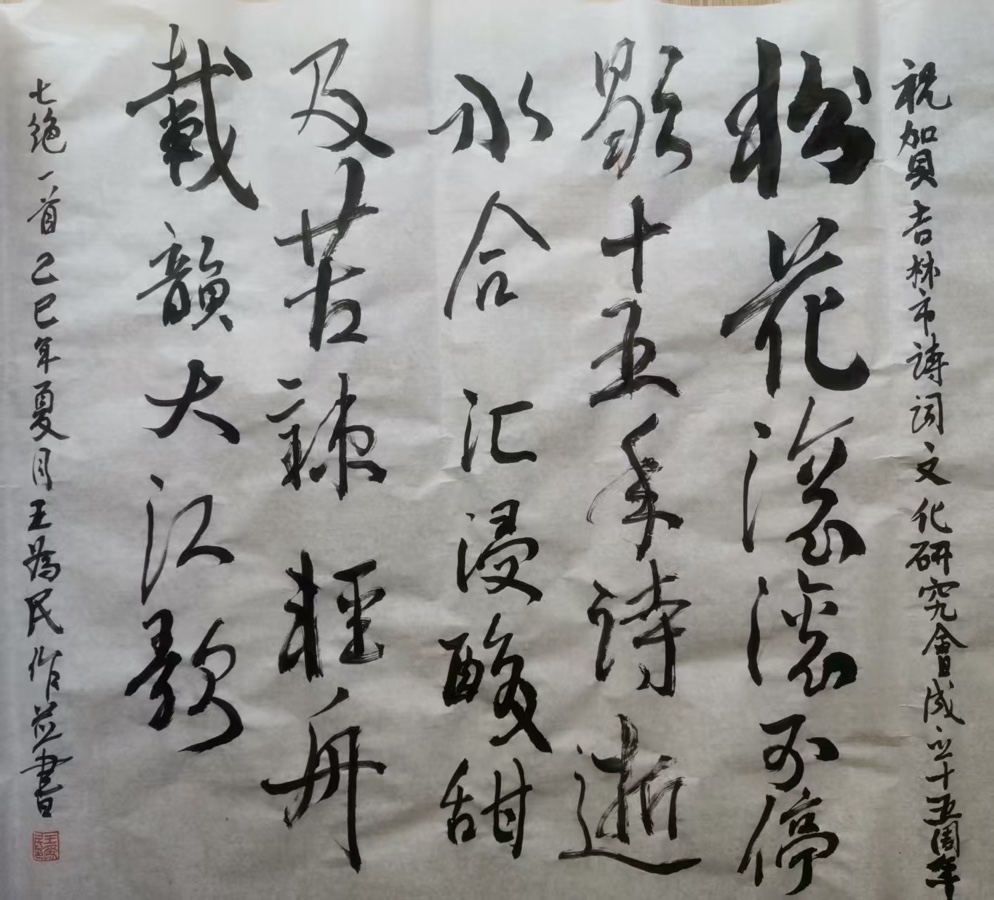 祝賀吉林市詩词文化研究會成立十五周年
松花滚滚不停
歇十五年诗逝
水合汇浸酸甜
及苦辣轻舟
載韻大江歌
七绝一首乙巳年夏月王為民作并書